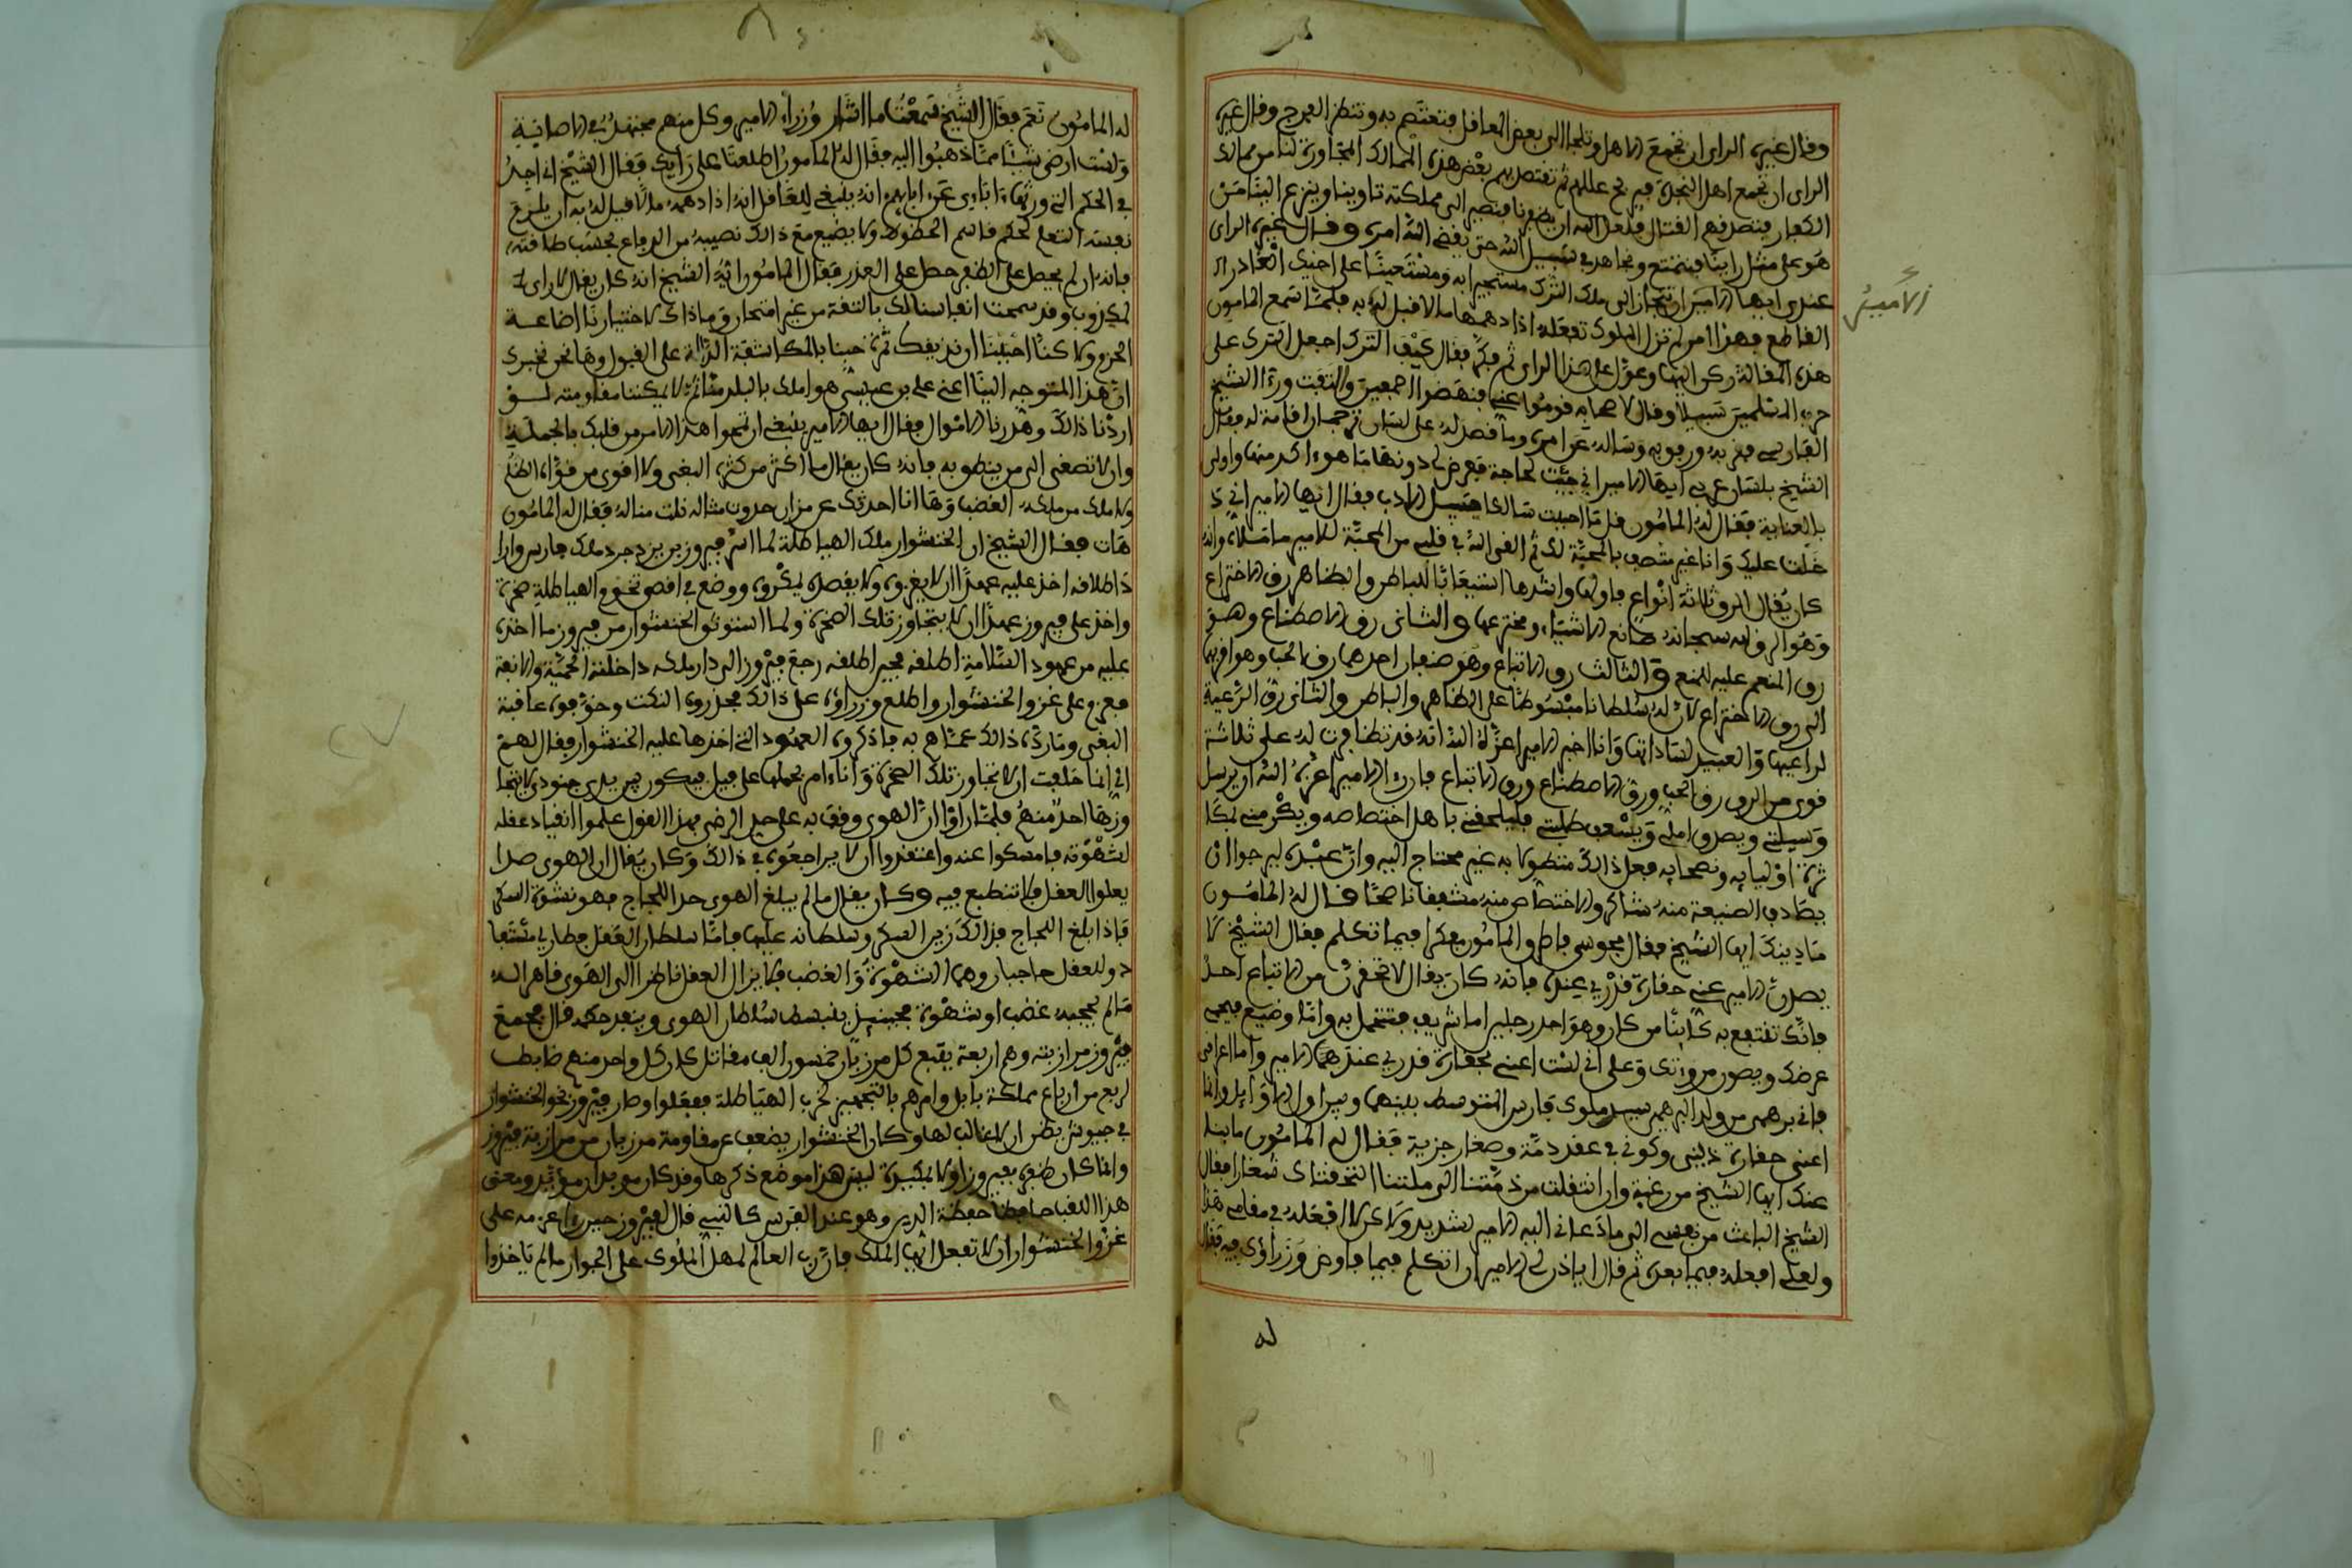 وقال غيره الراى ان تجمع الاهل وتلجا الى بعض المعاقل فتعتصم به وتنتظر الفرج وقال غيره
الراى ان تجمع اهل النجدة فيزيح عللهم ثم تقتصد بهم بعض هذه الممالك المجاورة لنا من ممالك
الكفار فتصدقهم القتال فلعل الله ان يظفرنا فنصير الى مملكة تاوينا وينزع الينا من
هو على مثل راينا فيمتنع ونجاهد في سبيل الله حتى يقضي الله امره وقال غيره الراى
عندي ايها الامير ان تنحاز الى ملك الترك مستجيرا به ومستعينا على اخيك الغادر ال
القاطع فهذا امر لم تزل الملوك تفعله اذا دهمها ما لا قبل لها به فلما سمع المامون
هذه المقالة ركن اليها وعول على هذا الراى ثم فكر فقال كيف اترك اجعل للترك على
حرب المسلمين سبيلا وقال لاصحابه قوموا عني فنهضوا اجمعين والتفت وراى الشيخ
الفارسي فقربه ورفق به وساله عن امره وما قصد له على لسان ترجمان اقامه له فقال
الشيخ بلسان عربي ايها الامير اني جيت لحاجة فعرض لي دونها ما هو اكد منها واولى
بالعناية فقال له المامون قل ما احببت سالكا سبيل الادب فقال ايها الامير اني د
خلت عليك وانا غير متصف بالمحبة لك ثم القى الله في قلبي من المحبة للامير ما ملاه وانه
كان يقال الرق ثلاثة انواع فاولها واشدها استيعابا للباطن والظاهر رق الاختراع
وهو الرق لله سبحانه صانع الاشياء ومخترعها والثاني رق الاصطناع وهو
رق المنعم عليه للمنعم والثالث رق الاتباع وهو صنفان احدهما رق الحب وهو اقربها
الى رق الاختراع لان له سلطانا مبسوطا على الظاهر والباطن والثاني رق الرعية
لراعيها والعبيد لساداتها وانا اخبر الامير اعزه الله انه قد تظافرت له على ثلاثة
قوى من الرق رق الحب ورق الاصطناع ورق الاتباع فان راى الامير اعزه الله ان يرسل
وسيلتي ويصدق املي ويسعف طلبتي فليلحقني باهل اختصاصه ويكرمني بكا
ثرة اوليايه ونصحايه فعل ذالك متطولا به غير محتاج اليه وان عبده ليرجوا ان
يصادف الصنيعة منه شاكرا والاختصاص منه مشفقا ناصحا فقال له المامون
ما دينك ايها الشيخ فقال مجوسي فاطرق المامون مفكرا فيما تكلم فقال الشيخ لا
يصدن الامير عني حقارة قدري عنده فانه كان يقال لا تحقرن من الاتباع احدا
فانك تنتفع به كاينا من كان وهو احد رجلين اما شريف فتتجمل به واما وضيع فيحمي
عرضك ويصون مروتك وعلى اني لست اعني بحقارة قدري عند الامير واما اعراقي
فاني برهمي من ولد البرهمي سيد ملوك فارس المتوسط بينهما وبين اول الاوايل وانما
اعني حقارة ديني وكوني في عقد ذمة وصغار جزية فقال له المامون ما بنا
عنك ايها الشيخ من رغبة وان انتقلت من ذمتنا الى ملتنا اتخذناك شعارا فقال
الشيخ الباعث من نفسي الى ما دعاني اليه الامير لشديد ولكن لا افعله في مقامي هذا
ولعلي افعله فيما بعد ثم قال اياذن لي الامير ان اتكلم فيما فاوض وزراؤه فيه فقال
له
الامير
له المامون نعم فقال الشيخ سمعت ما اشار وزراء الامير وكل منهم مجتهد في الاصابة
ولست ارضى شيئا مما ذهبوا اليه فقال له المامون اطلعنا على رايك فقال الشيخ اني اجد
في الحكم التي ورثها اباءي عن ابايهم انه ينبغي للعاقل انه اذا دهمه ما لا قبل له به ان يلزم
نفسه التسليم لحكم قاسم الحظوظ ولا يضيع مع ذالك نصيبه من الدفاع بحسب طاقته
فانه ان لم يحصل على الظفر حصل على العذر فقال المامون ايه الشيخ انه كان يقال لا راى
لمكذوب وقد سمحت انفسنا لك بالثقة من غير امتحان وما ذاك لاختيارنا اضاعة
الحزم ولاكنا احببنا ان نذيقك ثمرة حبنا بالمكاشفة الدالة على القبول وها نحن نخبرك
ان هذا المتوجه الينا اعني علي بن عيسى هو املك بالبلد منا ثم لا يمكننا مقاومته لو
اردنا ذالك وهذرنا الاموال فقال ايها الامير ينبغي ان تمحوا هذا الامر من قلبك بالجملة
وان لا تصغى الى من ينطق به فانه كان يقال ما اكثر من كثره البغي ولا اقوى من قواه الظلم
ولا ملك من ملكه الغضب وها انا احدثك عن من ان حذوت مثاله نلت مناله فقال له المامون
هات فقال الشيخ ان الخنشوار ملك الهياطلة لما اسر فيروز بن يزدجرد ملك فارس وارا
د اطلاقه اخذ عليه عهدا ان لا يغزوه ولا يقصده بمكروه ووضع في اقصى تخوم الهياطلة صخرة
واخذ على فيروز عهدا ان لا يتجاوز تلك الصخرة ولما استوثق الخنشوار من فيروز بما اخذه
عليه من عهود السلامة اطلقه فحين اطلقه رجع فيروز الى دار ملكه داخلته الحمية والانفة
فعزم على غزو الخنشوار واطلع وزراؤه على ذالك فحذروه النكث وخوفوه عاقبة
البغي وما رده ذالك عما هم به فاذكروه العهود التي اخذها عليه الخنشوار فقال لهم
اني انما حلفت ان لا اتجاوز تلك الصخرة وانا ءامر بحملها على فيل فيكون بين يدي جنودي لا يتجا
وزها احد منهم فلما راوا ان الهوى وقف به على حد الرضى بهذا القول علموا انقياد عقله
لشهوته فامسكوا عنه واعتقدوا ان لا يراجعوه في ذالك وكان يقال ان الهوى صدا
يعلوا العقل فلا تنطبع فيه وكان يقال ما لم يبلغ الهوى حد اللجاج فهو نشوة السكر
فاذا بلغ اللجاج فذالك رين السكر وسلطانه عليها فاما سلطان العقل فطاريء
وللعقل حاجبان وهما الشهوة والغضب فلا يزال العقل ناظرا الى الهوى قاهرا له
ما لم يحجبه غضب او شهوة فحينيذ ينبسط سلطان الهوى وينفذ حكمه قال فجمع
فيروز مرازبته وهم اربعة يتبع كل مرزبان خمسون الف مقاتل كان كل واحد منهم ضابط
لربع من ارباع مملكة بابل وامرهم بالتجهيز لحرب الهياطلة ففعلوا وسار فيروز نحو الخنشوار
في جيوش يظن ان لا غالب لها وكان الخنشوار يضعف عن مقاومة مرزبان من مرازبة فيروز
وانما كان ظفره بفيروز اولا لمكيدة ليس هذا موضع ذكرها وقد كان موبذان موبذ ومعنى
هذا اللقب حافظ حفظة الدين وهو عند الفرس كالنبي قال لفيروز حين راى عزمه على
غزو الخنشوار ان لا تفعل ايها الملك فان رب العالم لمهل الملوك على الجور ما لم ياخذوا